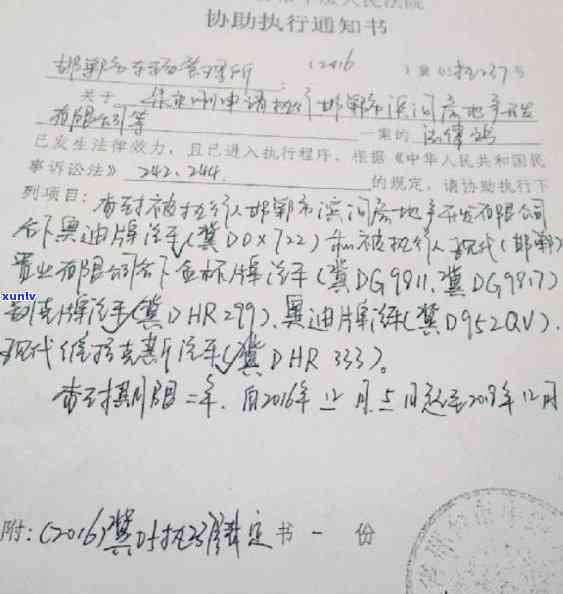 人民法院
协助执行通知书
邯郸市车辆管理所 :(2016)冀 执237号
关于 申请执行邯郸市滨河房地产开发
有限公司等 一案的 法律文书
已发生法律效力,且已进入执行程序。根据《中华人民共和国民
事诉讼法》242、244 的规定,请协助执行下
列项目:查封被执行人邯郸市滨河房地产开发有限公司
名下奥迪牌汽车(冀D0X722)和被执行人现代(邯郸)
置业有限公司名下金杯牌汽车(冀DG9811、冀DG9817)
别克牌汽车(冀DHR299)、奥迪牌汽车(冀D952QV)、
现代维拉克鲁斯汽车(冀DHR333)。
查封期限二年,自2016年12月5日起至2018年12月
附:(2016)冀 执237 裁定书一份
xunlv